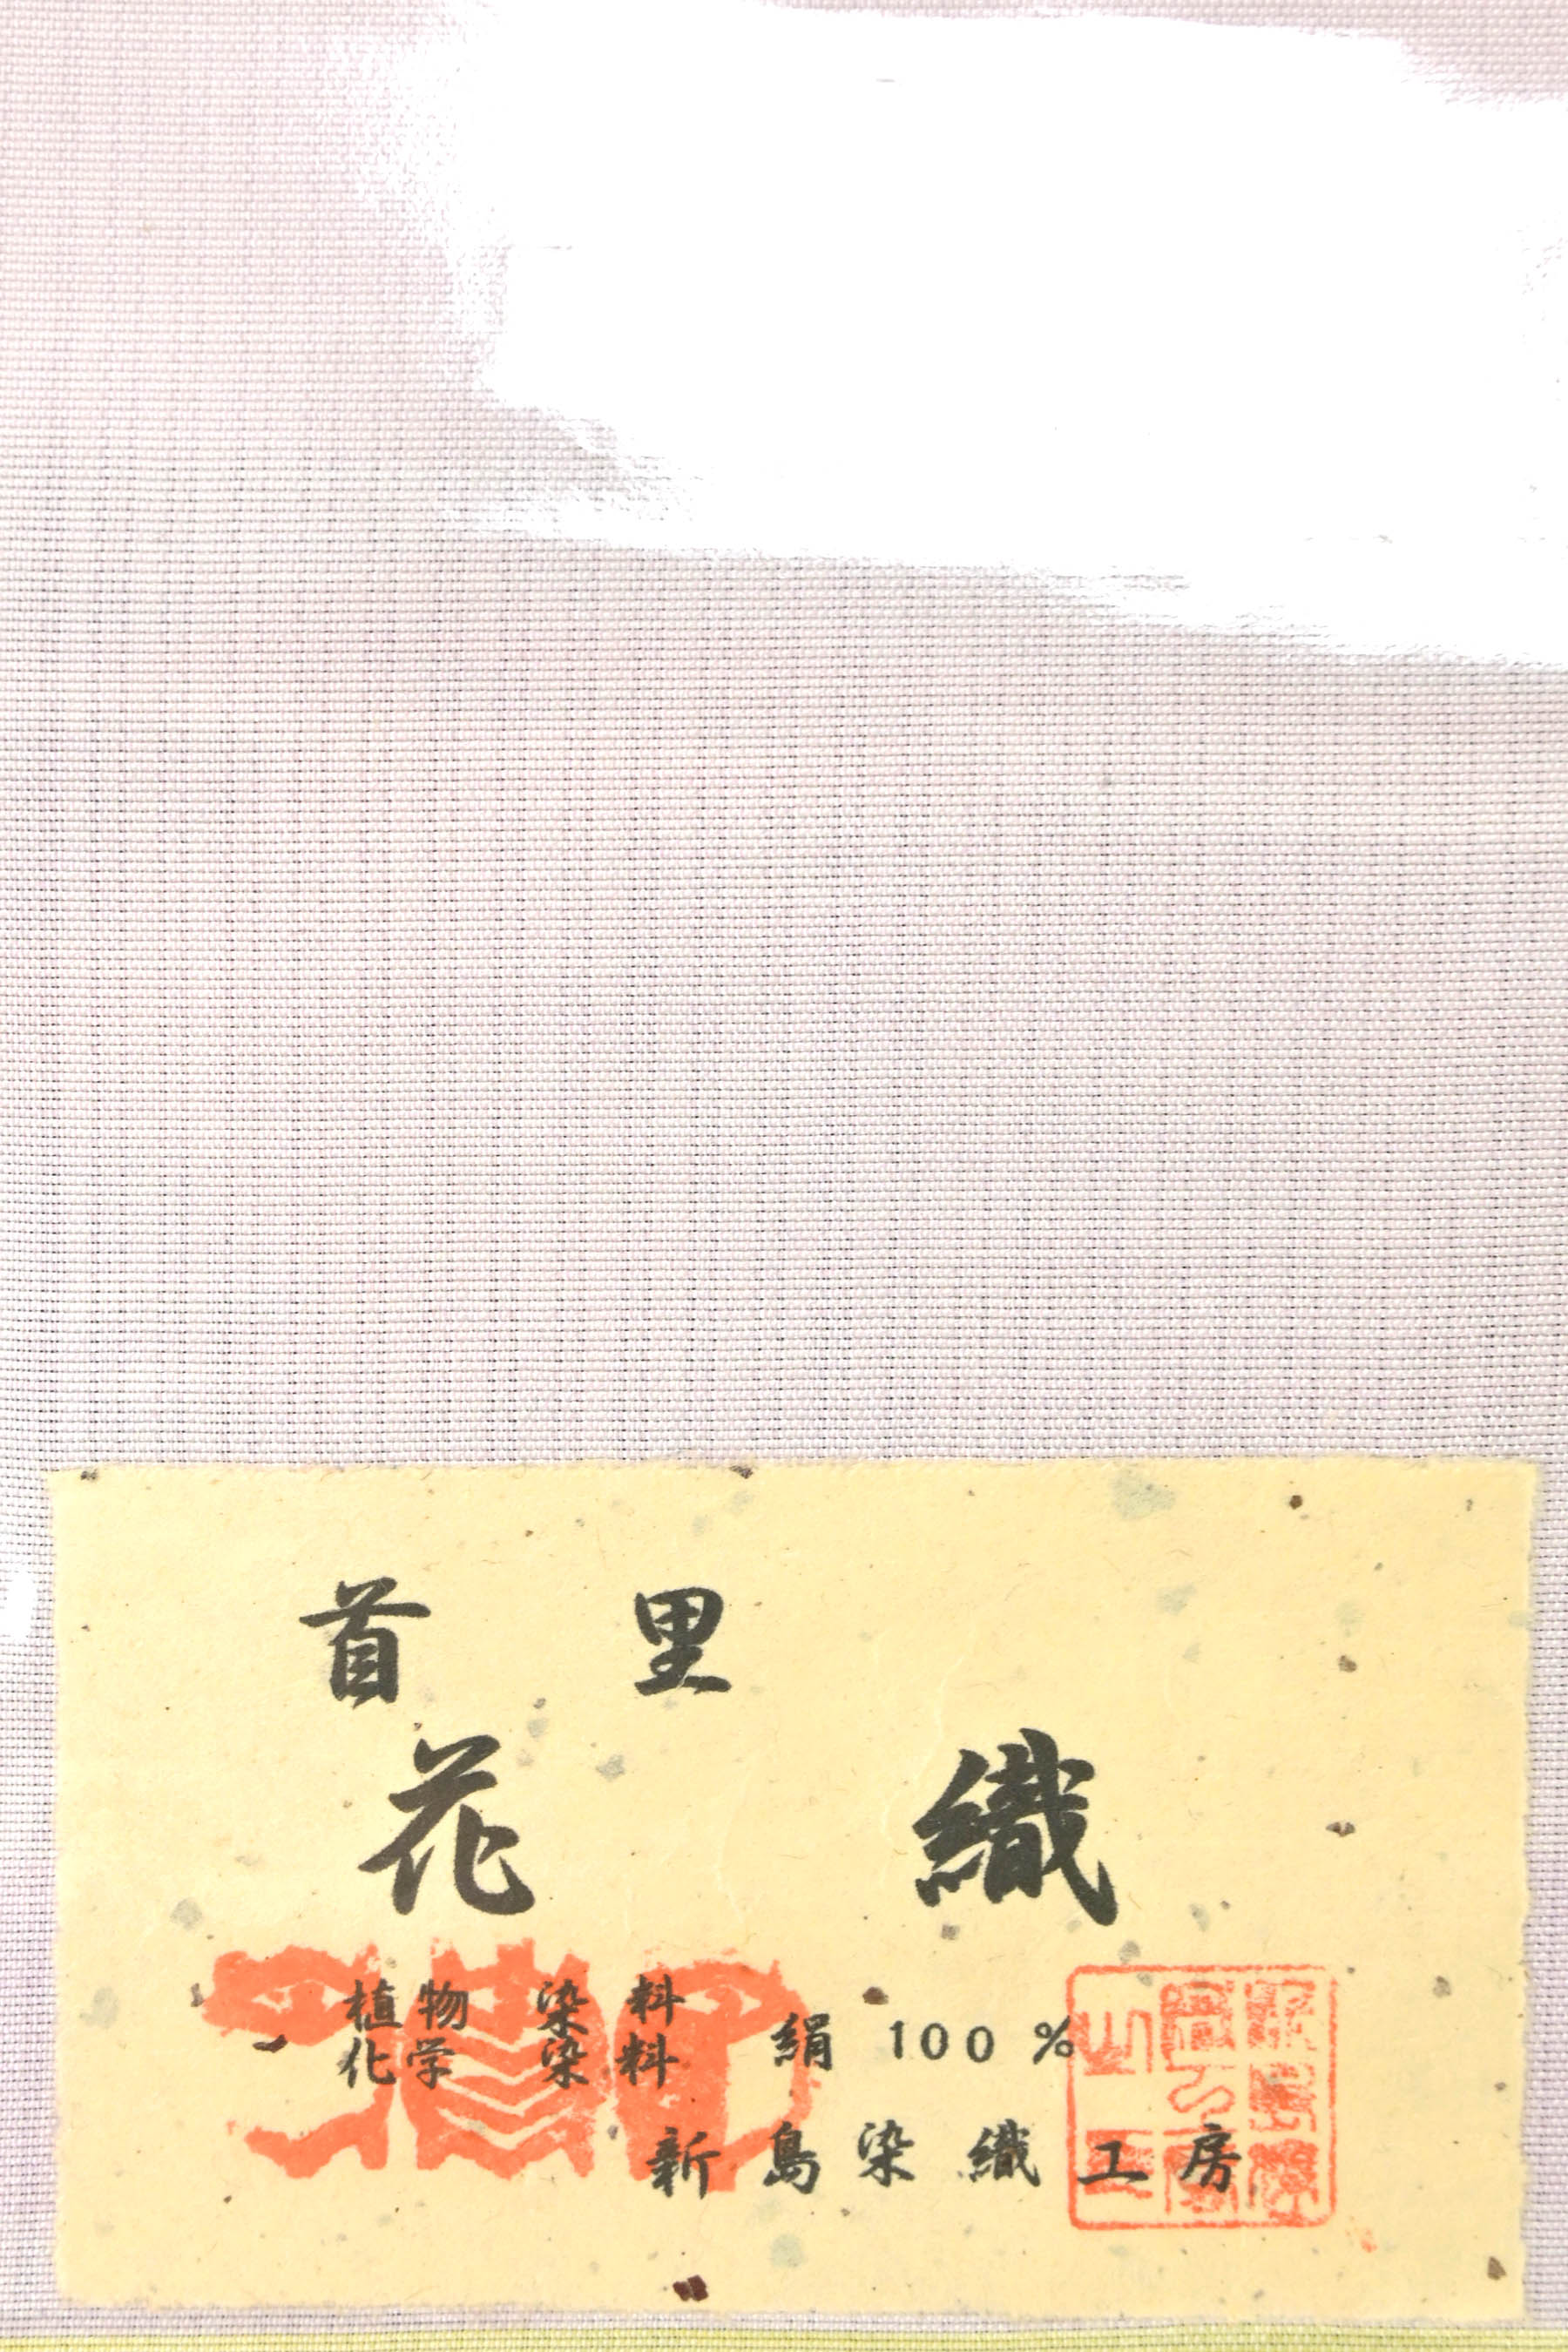 首里
花織
植物染料
化学染料
絹 100%
新島染織工房